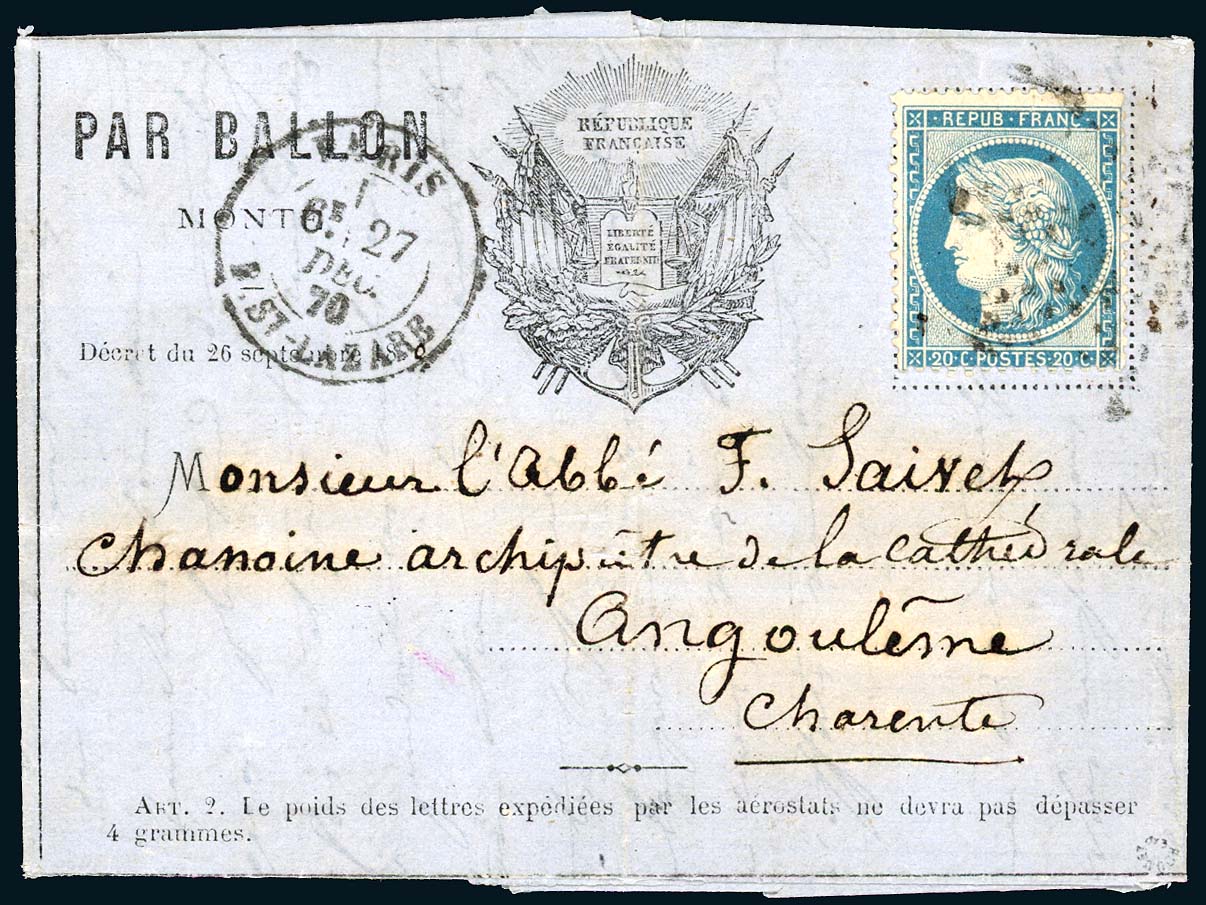 PAR BALLON
MONTÉ.
Décret du 26 septembre 1870
PARIS
6E 27
DEC.
70
R. ST-LAZARE
RÉPUBLIQUE
FRANÇAISE
LIBERTÉ
ÉGALITÉ
FRATERNITÉ
REPUB·FRANC
20·C·POSTES·20·C
Monsieur l'Abbé F. Saivet
Chanoine archiprêtre de la cathédrale
Angoulême
Charente
ART. 2. Le poids des lettres expédiées par les aérostats ne devra pas dépasser
4 grammes.